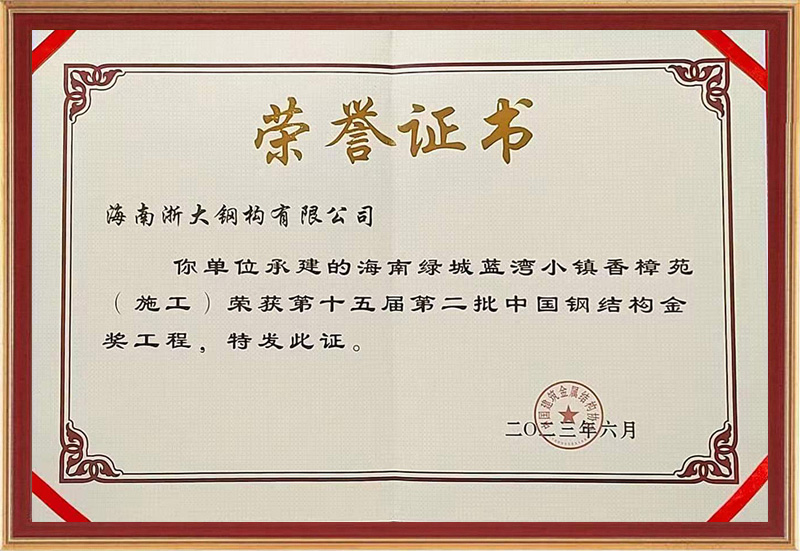 荣誉证书
海南浙大钢构有限公司
你单位承建的海南绿城蓝湾小镇香樟苑
（施工）荣获第十五届第二批中国钢结构金
奖工程，特发此证。
中国建筑金属结构协会
二〇二三年六月